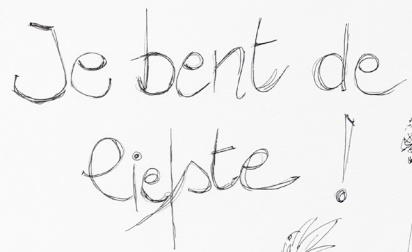 Je bent de
liefste !